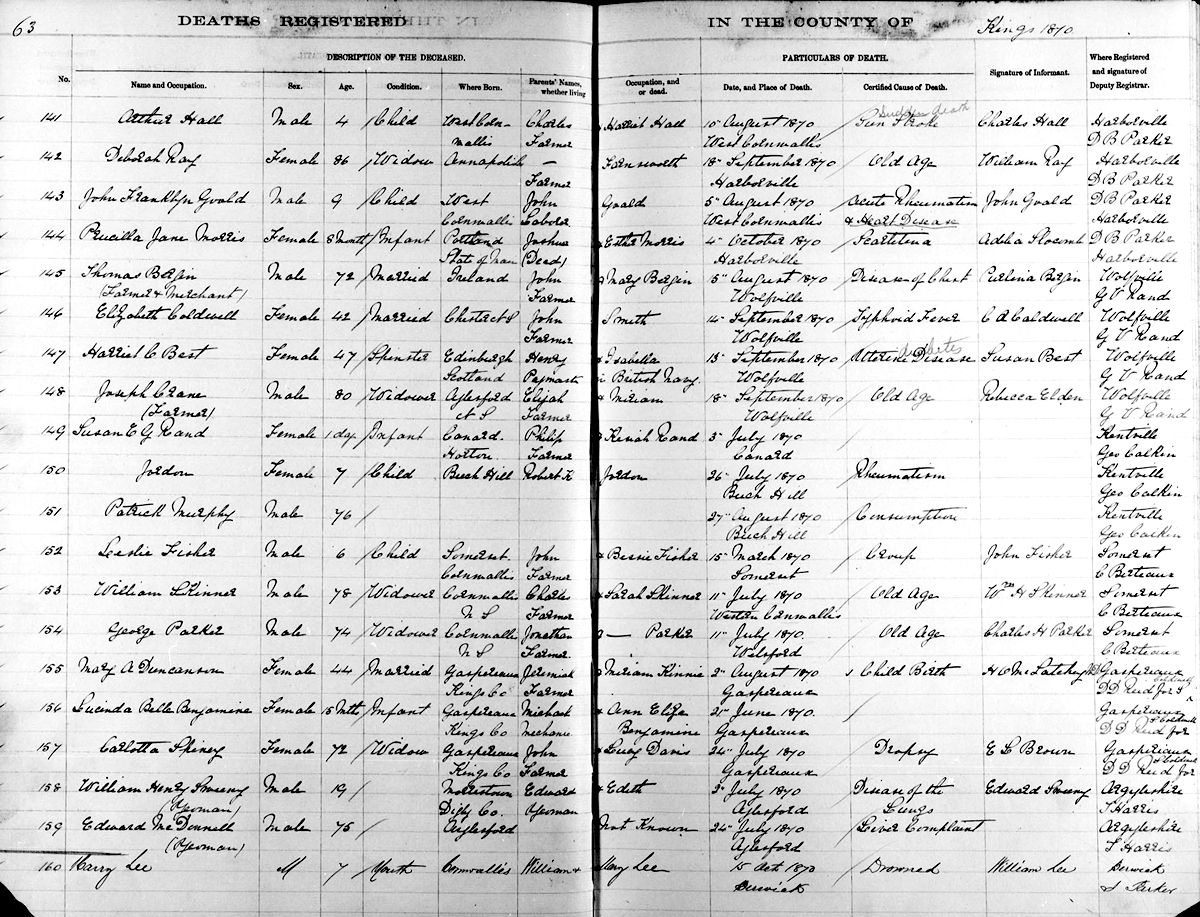 63
DEATHS REGISTERED IN THE COUNTY OF Kings 1870
DESCRIPTION OF THE DECEASED. PARTICULARS OF DEATH.
No. Name and Occupation. Sex. Age. Condition. Where Born. Parents' Names, whether living Occupation, and or dead. Date, and Place of Death. Certified Cause of Death. Signature of Informant. Where Registered and signature of Deputy Registrar.
Sudden death
141 Arthur Hall Male 4 Child West Corn- Charles & Harriet Hall 10" August 1870 Sun Stroke Charles Hall Harborville
wallis Farmer West Cornwallis D B Parker
142 Deborah Ray Female 86 Widow Annapolis — Farnsworth 18" September 1870 Old Age William Ray Harborville
Farmer Harborville D B Parker
143 John Franklyn Male 9 Child West John 5" August 1870 Acute Rheumatism John D B Parker
Cornwallis Labore West Cornwallis & Heart Disease Harborville
144 Prucilla Jane Morris Female 8 Month Infant Portland Joshua & Esther Morris 4" October 1870 Scarletina Adelia Slocomb D B Parker
State of Man (Dead) Harborville Harborville
145 Thomas Bergin Male 72 Married Ireland John & Mary Bergin 5" August 1870 Disease of Chest Bergin Wolfville
(Farmer & Merchant) Farmer Wolfville G V Rand
146 Elizabeth Coldwell Female 42 Married Chester N S John Smith 14" September 1870 Typhoid Fever C A Caldwell Wolfville
Farmer Wolfville G V Rand
147 Harriet C Best Female 47 Spinster Edinburgh Henry & Isabella 13" September 1870 Uterine Disease Susan Best Wolfville
Scotland Paymaste in British Navy. Wolfville G V Rand
148 Joseph Crane Male 80 Widower Aylesford Elijah & Miriam 18" September 1870 Old Age Rebecca Elden Wolfville
(Farmer) N S Farmer Wolfville G V Rand
149 Susan E G Rand Female 1 day Infant Canard. Philip & Keziah Rand 3" July 1870 Kentville
Horton Farmer Canard Geo Calkin
150 Jordon Female 7 Child Beech Hill Robert K Jordon 26" July 1870 Rheumatism Kentville
Beech Hill Geo Calkin
151 Patrick Murphy Male 76 27" August 1870 Consumption Kentville
Beech Hill Geo Calkin
152 Leslie Fisher Male 6 Child Somerset. John & Bessie Fisher 15" March 1870 Croup John Fisher Somerset
Cornwallis Farmer Somerset C Berteaux
153 William Skinner Male 78 Widower Cornwallis Charles & Sarah Skinner 11" July 1870 Old Age Wm H Skinner Somerset
N S Farmer Western Cornwallis C Berteaux
154 George Parker Male 74 Widower Cornwallis Jonathan & — Parker 11" July 1870. Old Age Charles H Parker Somerset
N S Farmer Welsford C Berteaux
155 Mary A Duncanson Female 44 Married Gaspereaux Jeremiah & Miriam Kinnie 2" August 1870 Child Birth H C McLatchey MD Gaspereaux
Kings Co Farmer Gaspereaux D D Reid
156 Lucinda Belle Benjamine Female 15 Mths Infant Gaspereaux Michael & Ann Eliza 21" June 1870. Gaspereaux
Kings Co Mechanic Benjamine Gaspereaux D D Reid
157 Carlotta Shiney Female 72 Widow Gaspereaux John & Lucy Davis 24" July 1870 Dropsy E L Brown Gaspereaux
Kings Co Farmer Gaspereaux D D Reid
158 William Henry Sweeny Male 19 Edward & Edeth 3" July 1870 Disease of the Edward Sweeny Argyleshire
(Yeoman) Digby Co. Yeoman Aylesford Lungs T Harris
159 Edward McDonnell Male 75 Aylesford Not Known 24" July 1870 Liver Complaint Argyleshire
(Yeoman) Aylesford T Harris
160 Harry Lee M 7 Youth Cornwallis William & Mary Lee 15 Oct 1870 Drowned William Lee Berwick
Berwick Parker